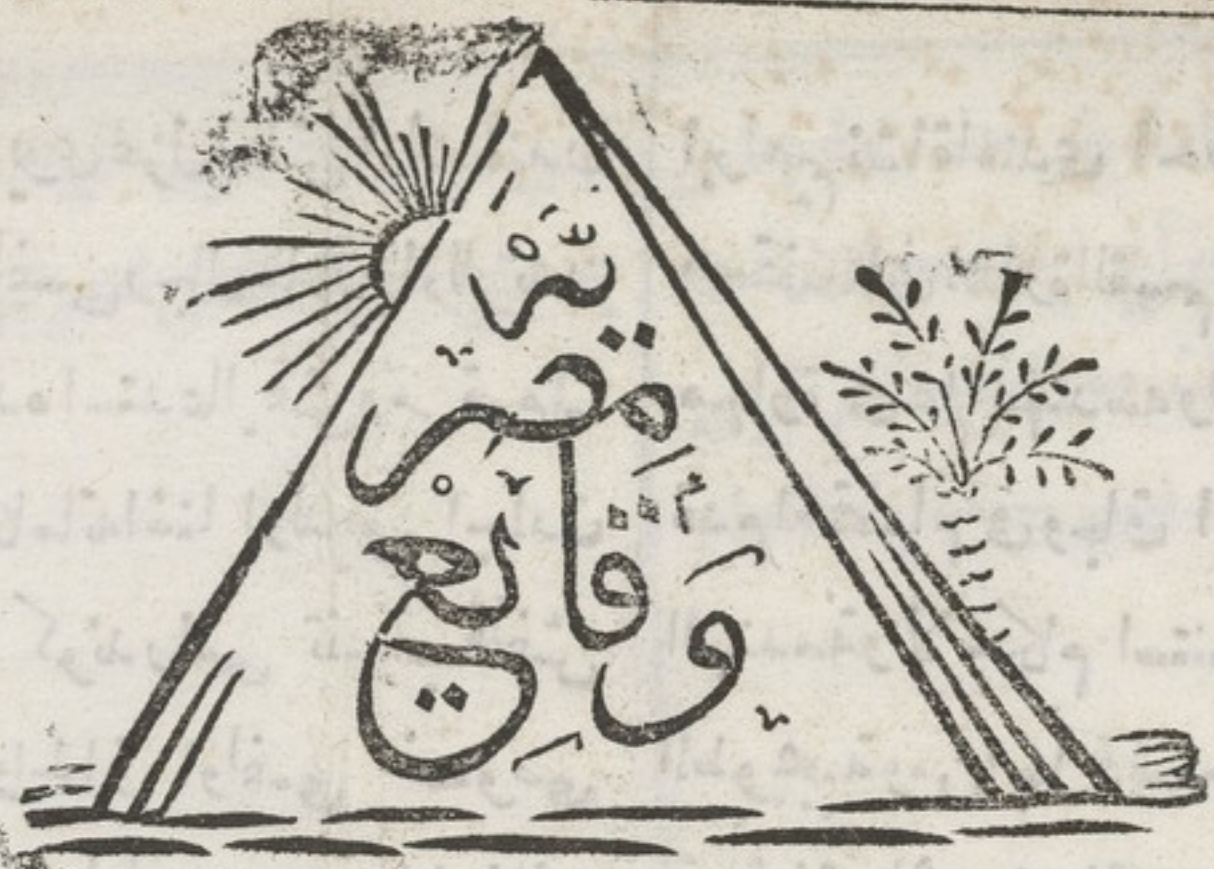 وقايع
مصر
يه